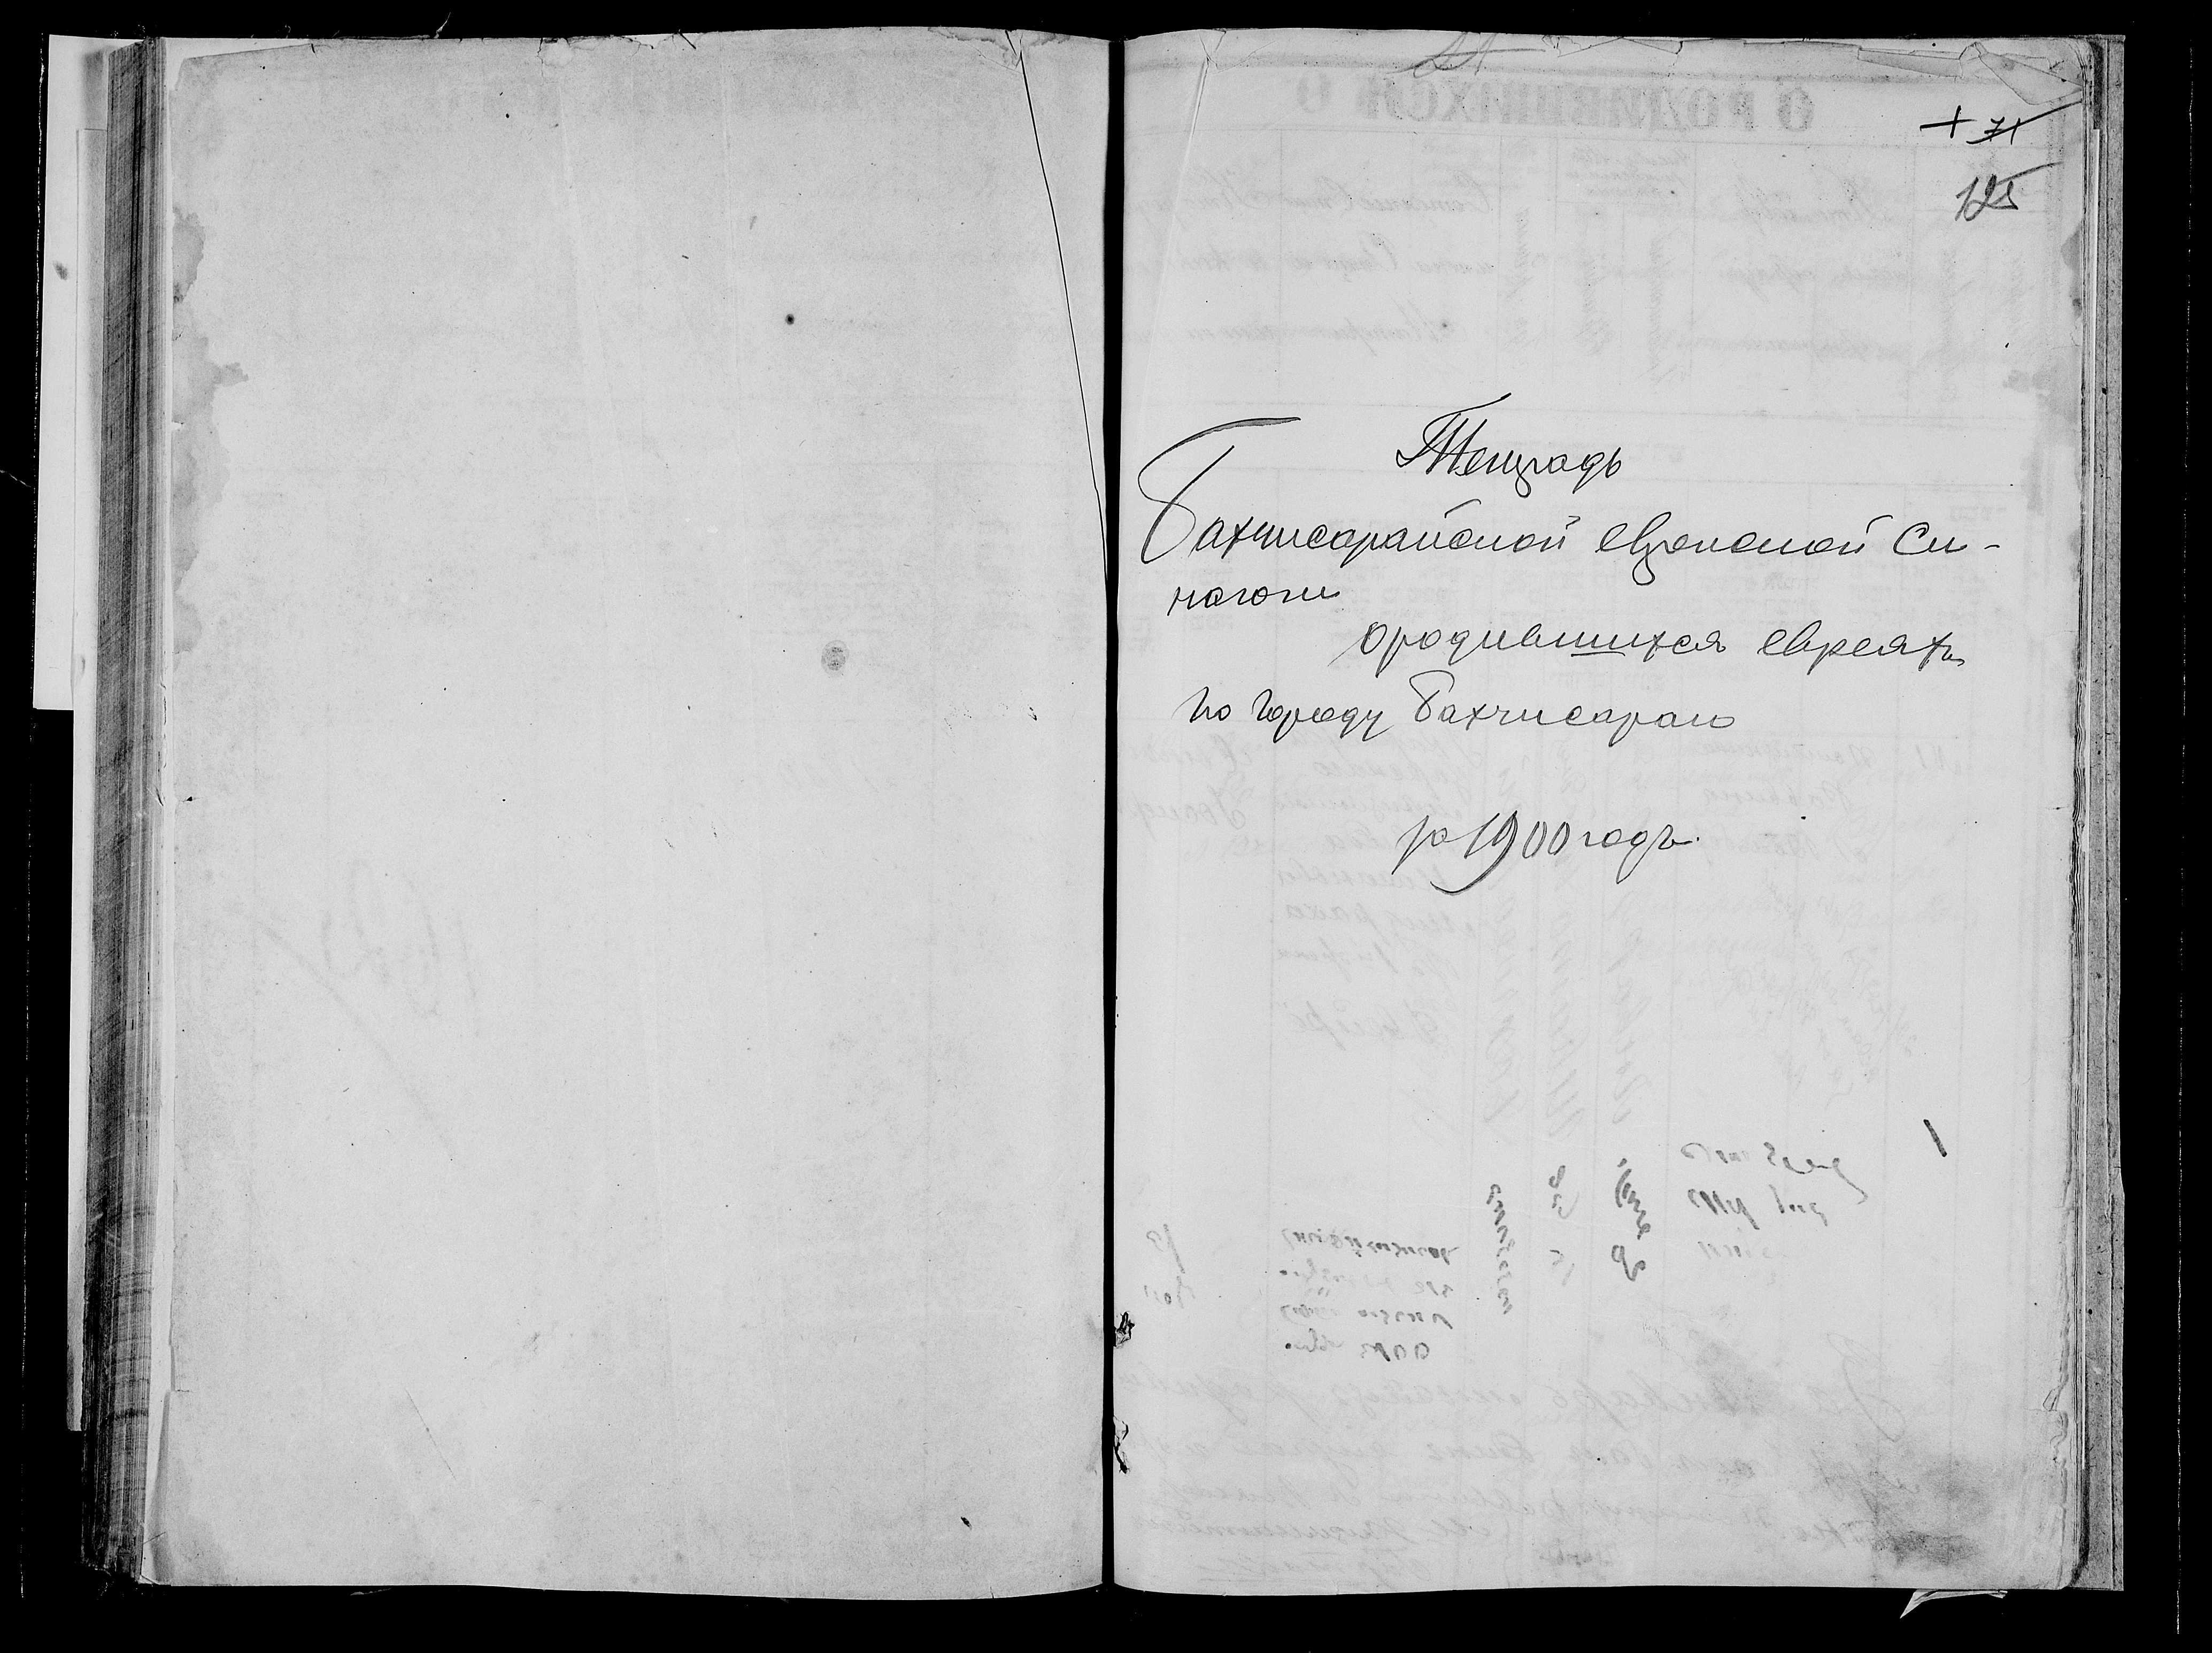 + 71
125
Тетрадь
Бахчисарайской еврейской Си-
нагоги
о родившихся евреяхъ
по городу Бахчисараю
за 1900 годъ.